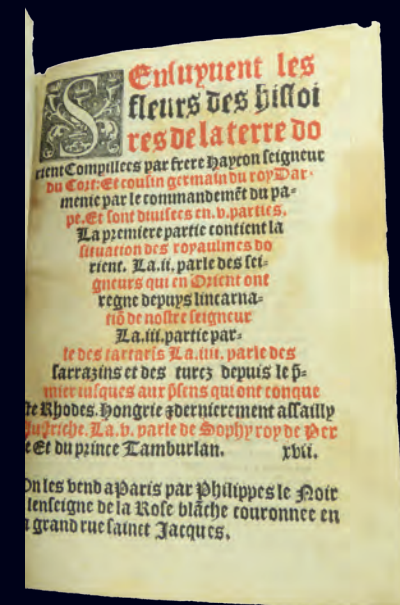 SEnsuyuent les
fleurs des histoi
res de la terre do
rient Compillees par frere Haycon seigneur
du Cort: Et cousin germain du roy Dar-
menie par le commandemēt du pa-
pe. Et sont diuisees en .v. parties.
La premiere partie contient la
situation des royaulmes do
rient. La .ii. parle des sei-
gneurs qui en Orient ont
regne depuys lincarna-
tiō de nostre seigneur
La .iii. partie par-
le des tartaris La .iiii. parle des
sarrazins et des turcz depuis le p̄-
mier iusques aux p̄sens qui ont conque
ste Rhodes. Hongrie ⁊ dernierement assailly
Austriche. La .v. parle de Sophy roy de Per
e Et du prince Tamburlan. xvii.
On les vend a Paris par Philippes le Noir
lenseigne de la Rose blāche couronnee en
grand rue sainct Jacques.